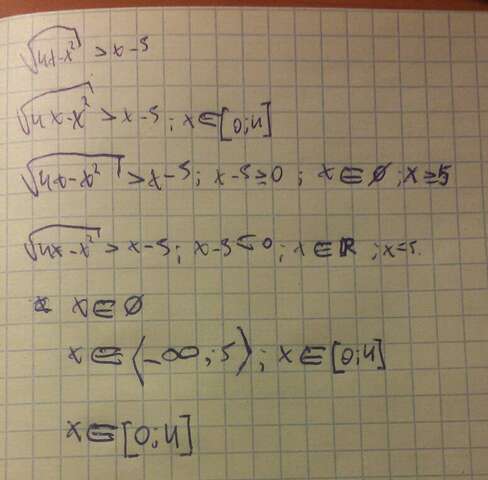 √4x-x² > x-5
√4x-x² > x-5; x∈[0;4]
√4x-x² > x-5; x-5≥0; x∈∅; x≥5
√4x-x² > x-5; x-5<0; x∈R; x<5.
x∈∅
x∈(-∞;5); x∈[0;4]
x∈[0;4]